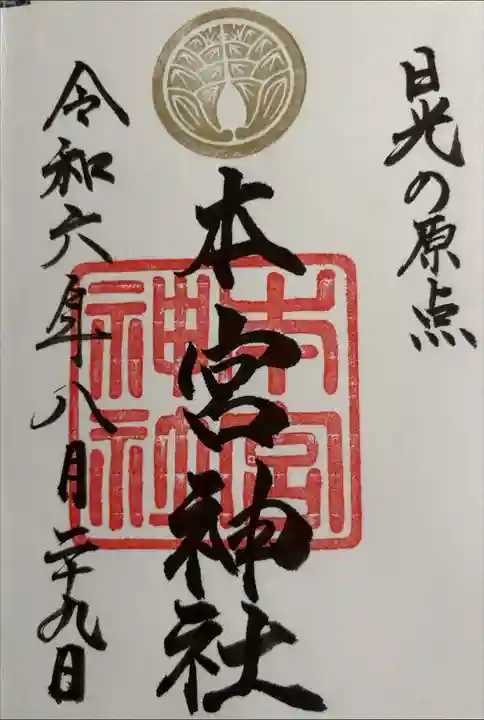 日光の原点
本宮神社
本宮神社
令和六年八月二十九日